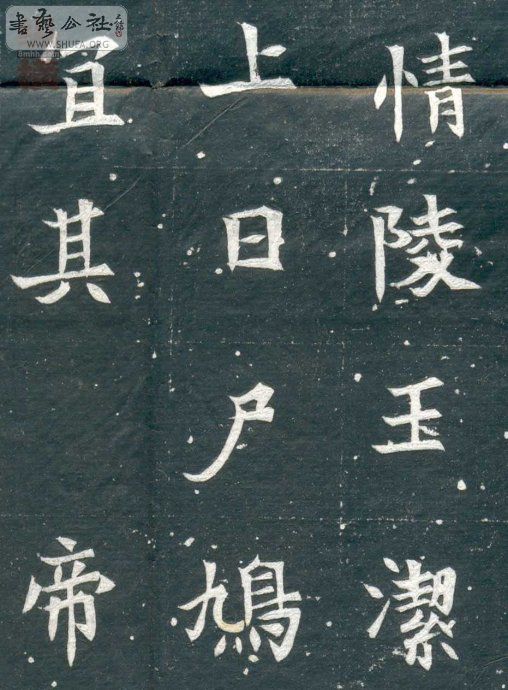 書藝公社
WWW.SHUFA.ORG
8mhh.com
情陵王潔
上日尸鳩
宜其帝